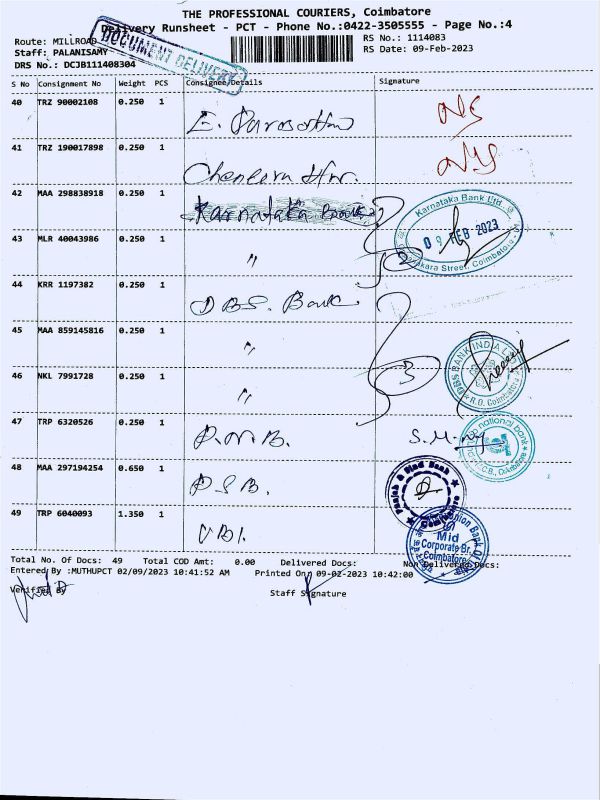 THE PROFESSIONAL COURIERS, Coimbatore
Delivery Runsheet - PCT - Phone No.:0422-3505555 - Page No.:4
Route: MILLROAD
RS No.: 1114083
Staff: PALANISAMY
RS Date: 09-Feb-2023
DRS No.: DCJB111408304
DOCUMENT DELIVERY
S No Consignment No Weight PCS Consignee/Details Signature
40 TRZ 90002108 0.250 1 E.
41 TRZ 190017898 0.250 1
42 MAA 298838918 0.250 1 Karnataka Bank
Karnataka Bank Ltd.
09 FEB 2023
Street, Coimbatore
43 MLR 40043986 0.250 1 " 2
44 KRR 1197382 0.250 1 DBS. Bank
45 MAA 859145816 0.250 1 "
DBS BANK INDIA LTD
R.O. Coimbatore
46 NKL 7991728 0.250 1 " 3
47 TRP 6320526 0.250 1 P.N.B.
national bank
48 MAA 297194254 0.650 1 P S B.
Punjab & Sind Bank
Coimbatore
49 TRP 6040093 1.350 1 UBI.
Union Bank Of
Mid
Corporate Br.
Coimbatore
Total No. Of Docs: 49 Total COD Amt: 0.00 Delivered Docs: Non Delivered Docs:
Entered By :MUTHUPCT 02/09/2023 10:41:52 AM Printed On: 09-02-2023 10:42:00
Verified By Staff Signature